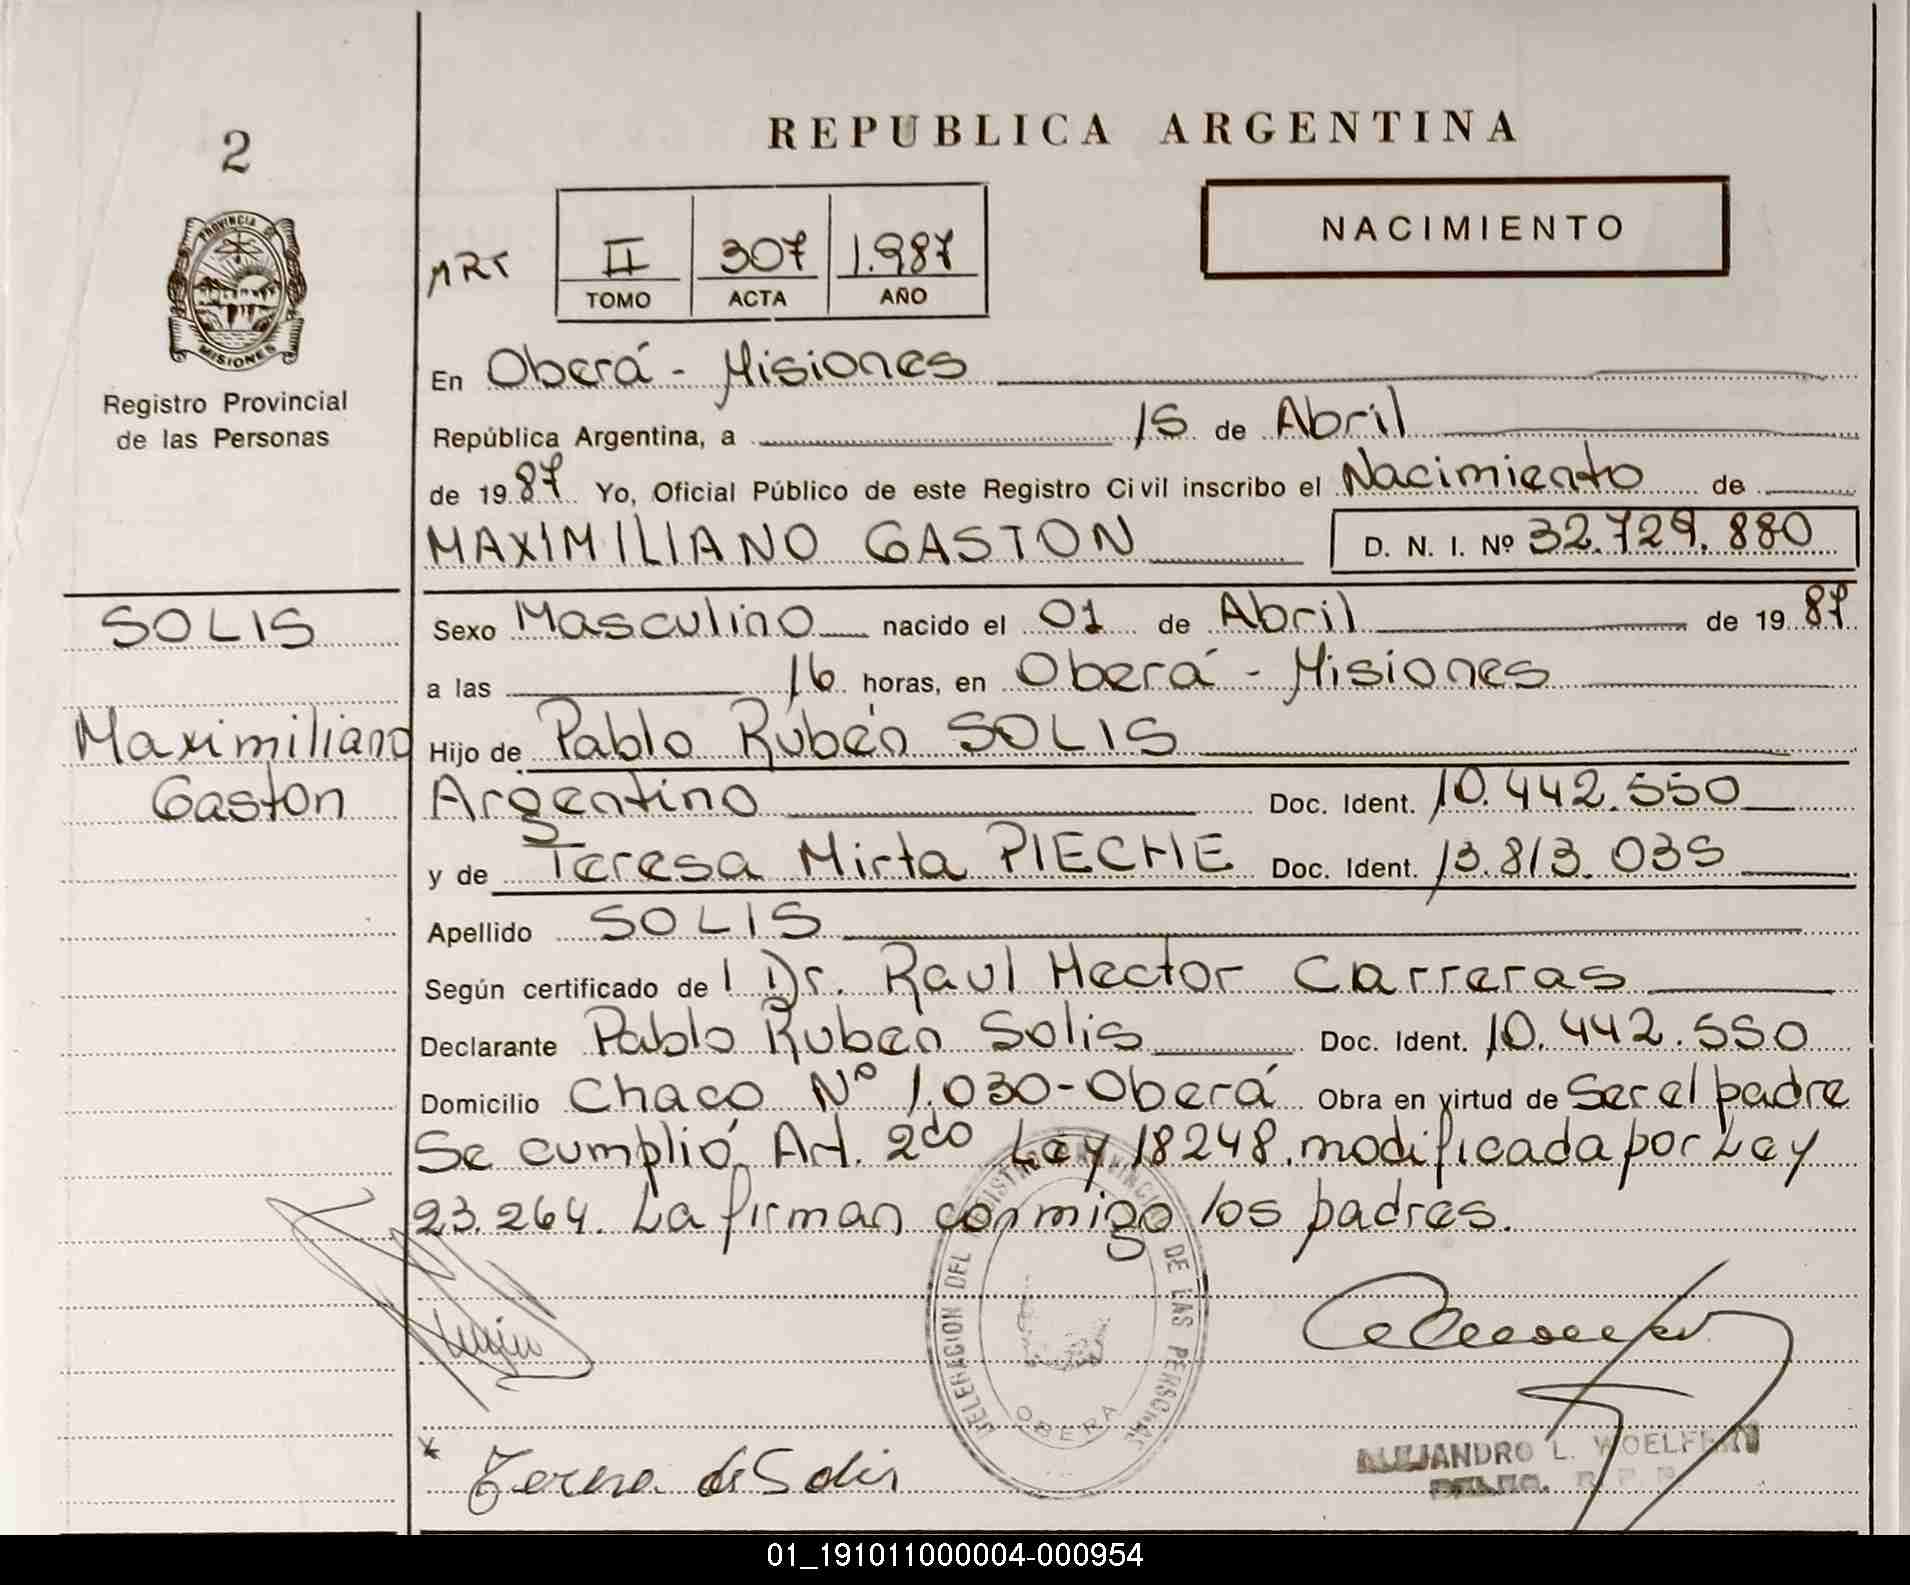 2
REPUBLICA ARGENTINA
NACIMIENTO
PROVINCIA DE
MISIONES
Registro Provincial
de las Personas
ART
II 307 1.987
TOMO ACTA AÑO
En Oberá - Misiones
República Argentina, a 15 de Abril
de 1987 Yo, Oficial Público de este Registro Civil inscribo el Nacimiento de
MAXIMILIANO GASTON D. N. I. Nº 32.729.880
SOLIS
Maximiliano
Gaston
Sexo Masculino nacido el 01 de Abril de 1987
a las 16 horas, en Oberá - Misiones
Hijo de Pablo Rubén SOLIS
Argentino Doc. Ident. 10.442.550
y de Teresa Mirta PIECHE Doc. Ident. 13.813.035
Apellido SOLIS
Según certificado de l Dr. Raul Hector Carreras
Declarante Pablo Ruben Solis Doc. Ident. 10.442.550
Domicilio Chaco Nº 1.030-Oberá Obra en virtud de Ser el padre
Se cumplió Art. 2do Ley 18248. modificada por Ley
23.264. La firman conmigo los padres.
DELEGACION DEL REGISTRO PROVINCIAL DE LAS PERSONAS
OBERA
ALEJANDRO L.
Teresa de Solis
01_191011000004-000954